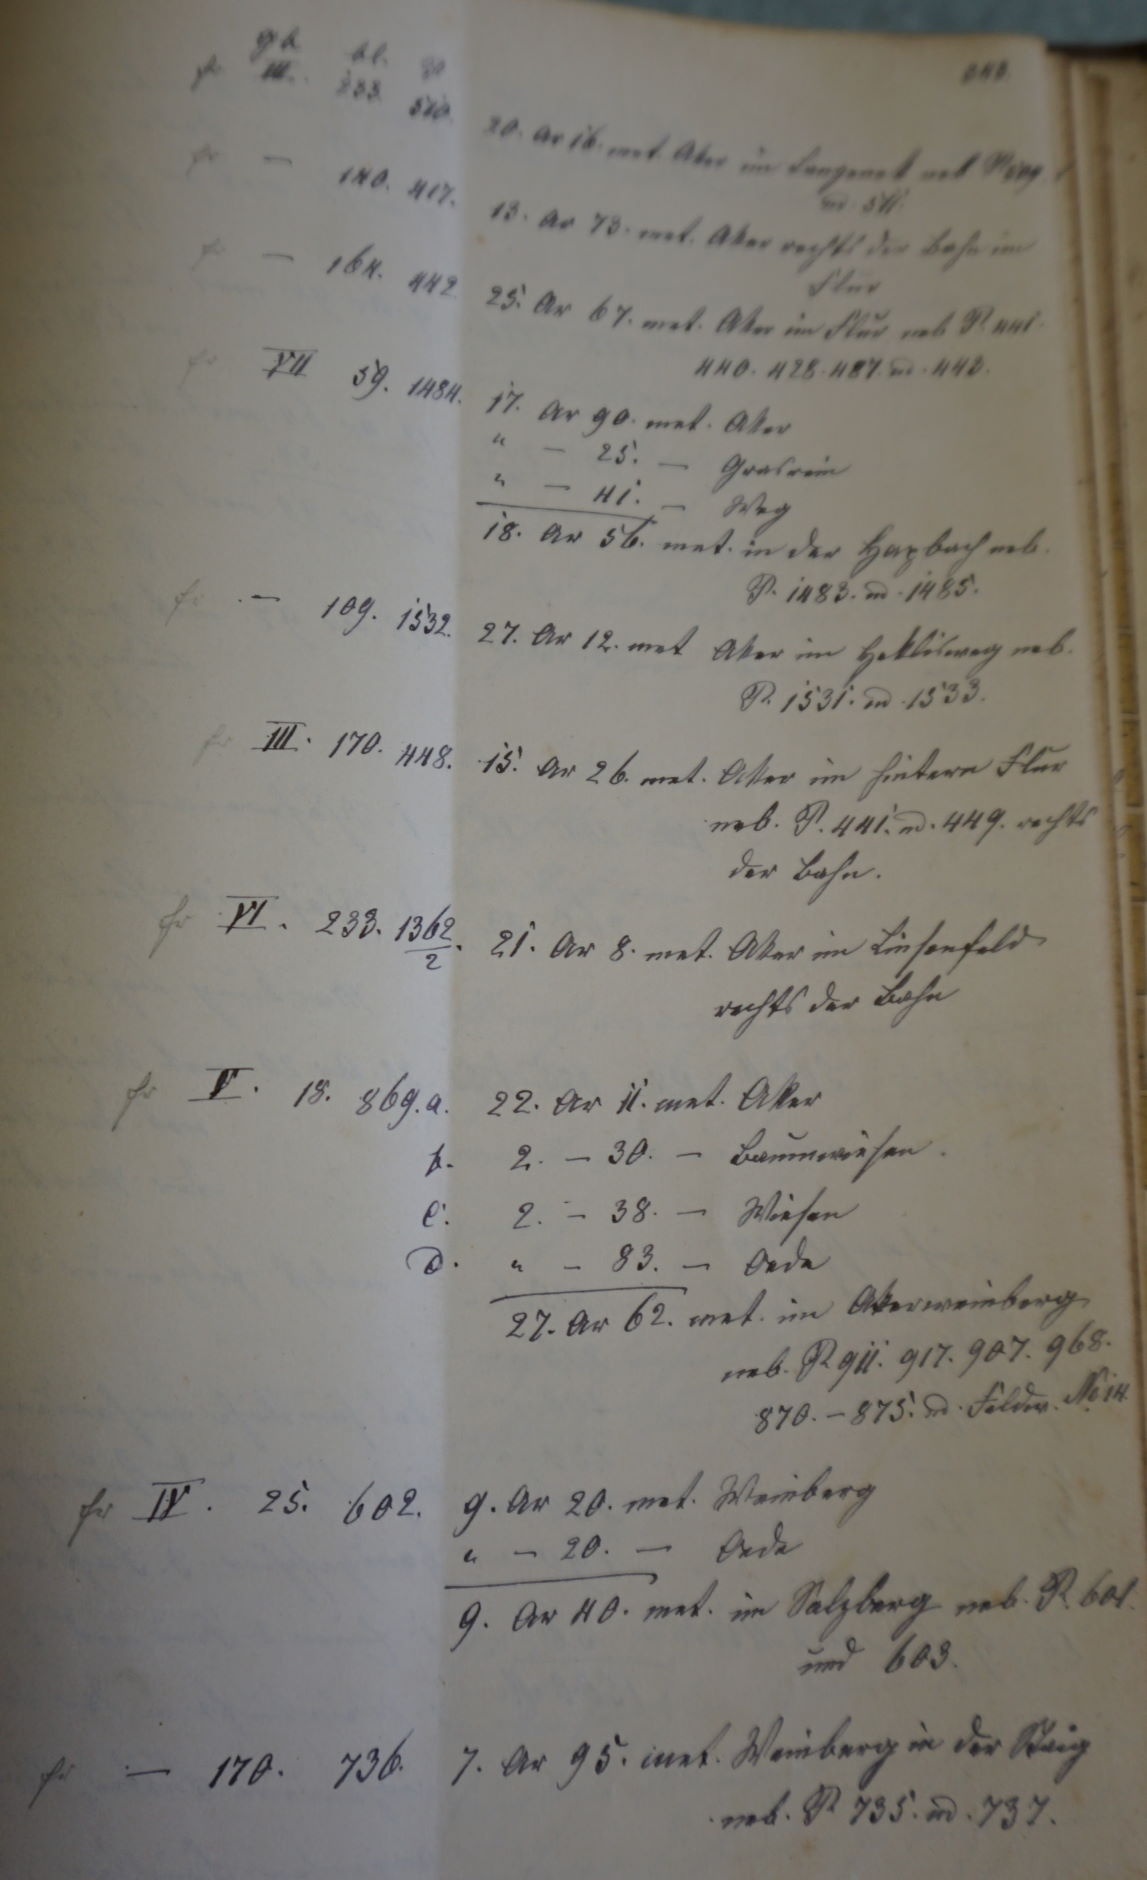 gb. bl. P.
fr III. 233. 510. 20. Ar 16. met. Aker im Langenek neb. P. 509.
nd. 511.
fr — 140. 417. 13. Ar 73. met. Aker rechts der Bahn im
Flur
fr — 164. 442. 25. Ar 67. met. Aker im Flur neb. P. 441.
fr VII 59. 1484. 17. Ar 90. met. Aker
" — 25. — Grasrain
" — 41. — Weg
18. Ar 56. met. in der neb.
P. 1483. nd. 1485.
fr — 109. 1532. 27. Ar 12. met Aker im neb.
P. 1531. nd. 1533.
fr III. 170. 448. 15. Ar 26. met. Aker im hintern Flur
neb. P. 441. nd. 449. rechts
der Bahn.
fr VI. 233. 1362/2. 21. Ar 8. met. Aker im Linsenfeld
rechts der Bahn
fr V. 18. 869. a. 22. Ar 11. met. Aker
b. 2. — 30. — Baumwiesen.
c. 2. — 38. — Wiesen
d. " — 83. — Oede
27. Ar 62. met. im Akerweinberg
neb. P. 911. 917. 907. 968.
870. – 875. nd. Feldw. No 14.
fr IV. 25. 602. 9. Ar 20. met. Weinberg
" — 20. — Oede
9. Ar 40. met. im Salzberg neb. P. 601.
und 603.
fr — 170. 736. 7. Ar 95. met. Weinberg in der Staig
neb. P. 735. nd. 737.